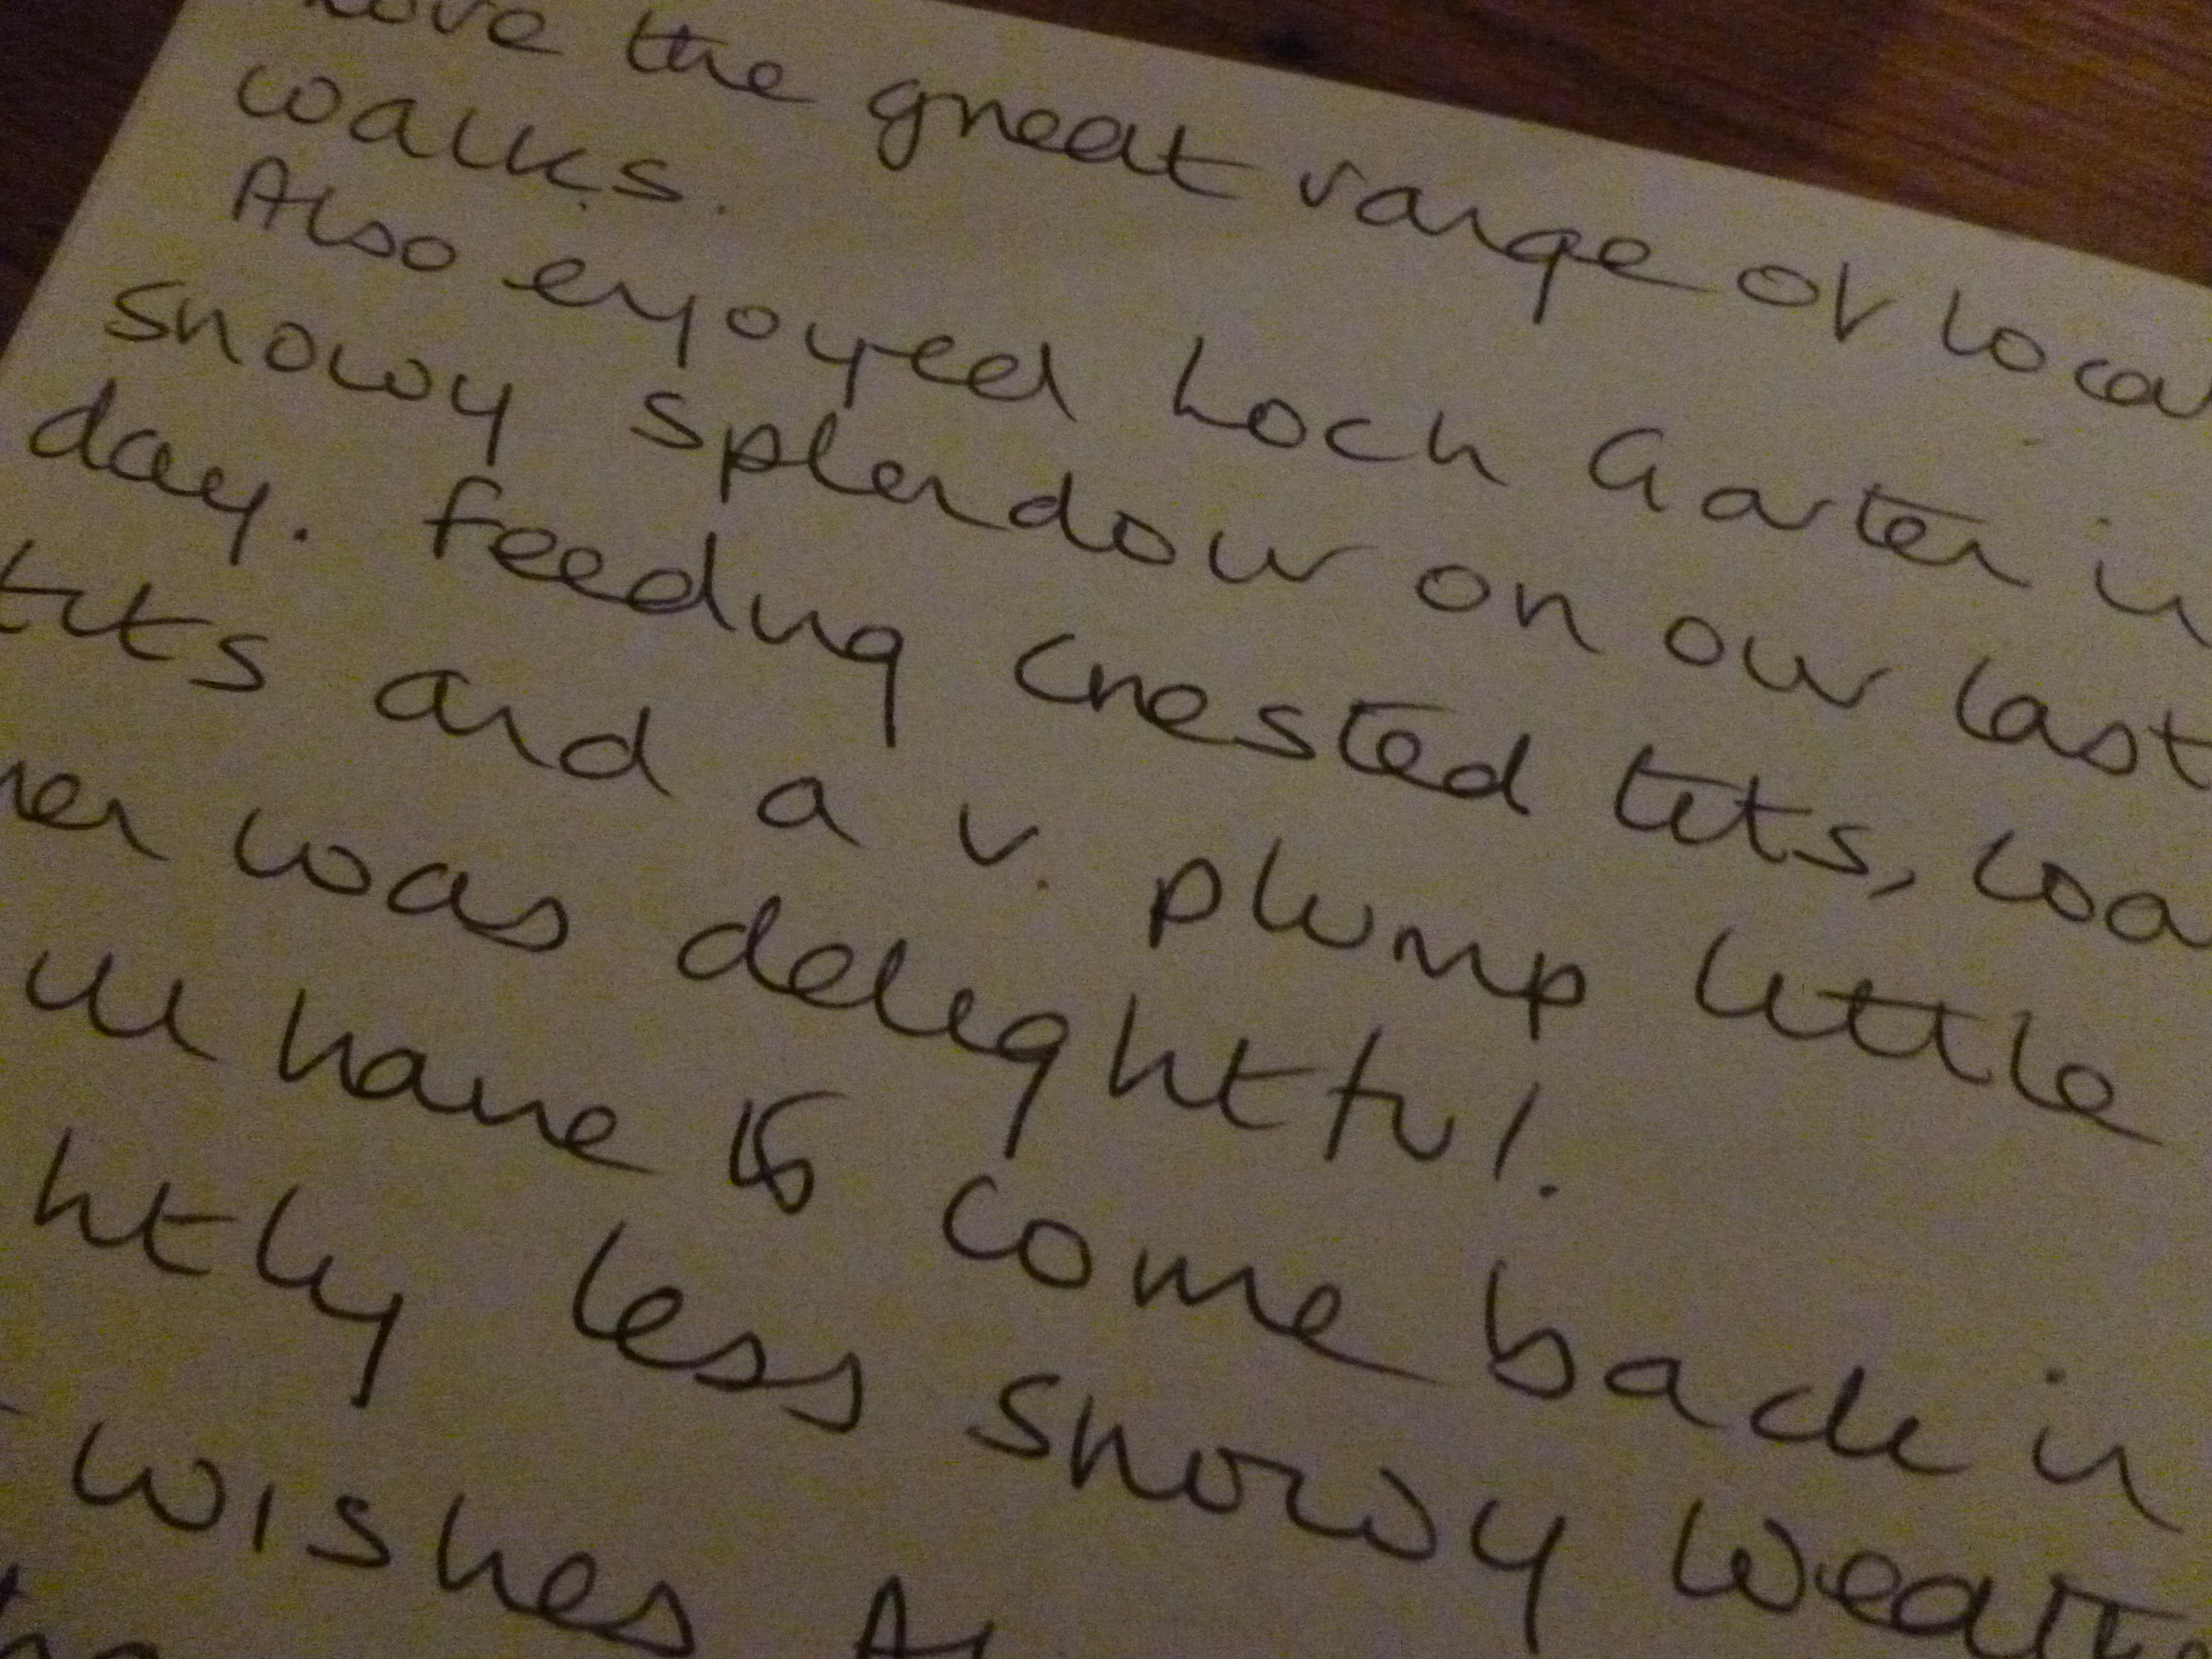 love the great range of loca
walks.
Also enjoyed Loch Garten in
snowy splendour on our last
day. Feeding crested tits, coa
tits and a v. plump little
was delightful.
ll have to come back in
htly less snowy weath
wishes